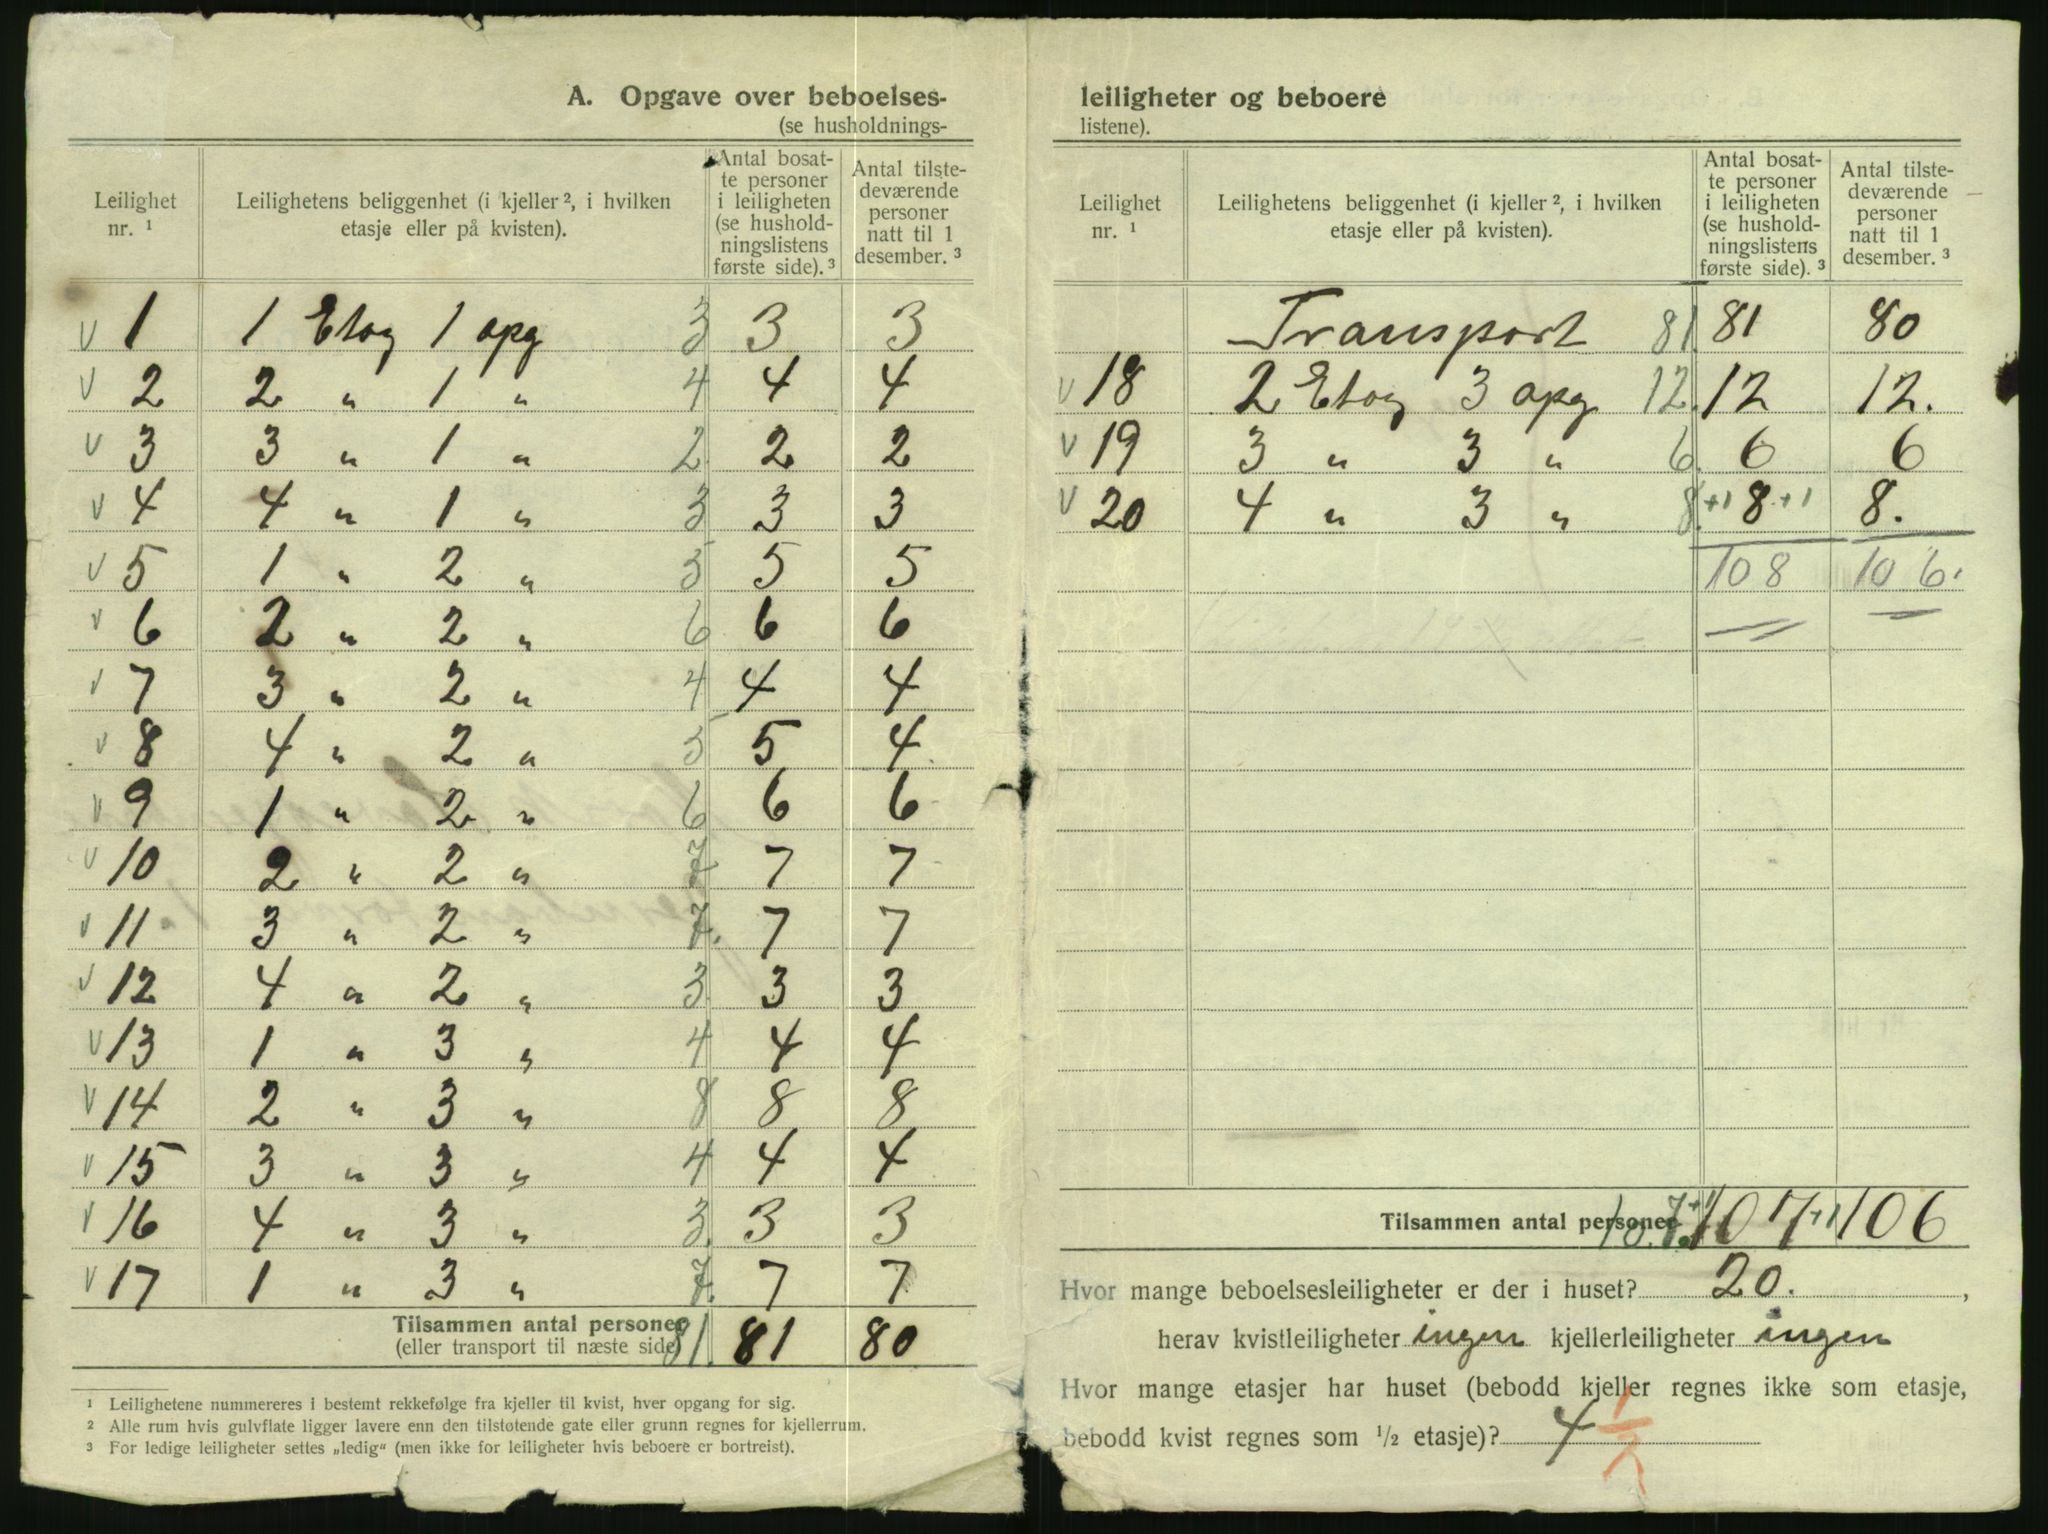 A. Opgave over beboelses-
(se husholdnings-
Leilighet nr. ¹ | Leilighetens beliggenhet (i kjeller ², i hvilken etasje eller på kvisten). | Antal bosatte personer i leiligheten (se husholdningslistens første side). ³ | Antal tilstedeværende personer natt til 1 desember. ³
v 1 1 Etag 1 opg 3 3 3
v 2 2 " 1 " 4 4 4
v 3 3 " 1 " 2 2 2
v 4 4 " 1 " 3 3 3
v 5 1 " 2 " 5 5 5
v 6 2 " 2 " 6 6 6
v 7 3 " 2 " 4 4 4
v 8 4 " 2 " 5 5 4
v 9 1 " 2 " 6 6 6
v 10 2 " 2 " 7 7 7
v 11 3 " 2 " 7. 7 7
v 12 4 " 2 " 3. 3 3
v 13 1 " 3 " 4 4 4
v 14 2 " 3 " 8 8 8
v 15 3 " 3 " 4 4 4
v 16 4 " 3 " 3. 3 3
v 17 1 " 3 " 7. 7 7
Tilsammen antal personer 81. 81 80
(eller transport til næste side)
¹ Leilighetene nummereres i bestemt rekkefølge fra kjeller til kvist, hver opgang for sig.
² Alle rum hvis gulvflate ligger lavere enn den tilstøtende gate eller grunn regnes for kjellerrum.
³ For ledige leiligheter settes „ledig" (men ikke for leiligheter hvis beboere er bortreist).
leiligheter og beboere
listene).
Leilighet nr. ¹ | Leilighetens beliggenhet (i kjeller ², i hvilken etasje eller på kvisten). | Antal bosatte personer i leiligheten (se husholdningslistens første side). ³ | Antal tilstedeværende personer natt til 1 desember. ³
Transport 81. 81 80
v 18 2 Etag 3 opg 12. 12 12.
v 19 3 " 3 " 6. 6 6
v 20 4 " 3 " 8. +1 8 +1 8.
108 106.
Tilsammen antal personer 107. +1 107 +1 106
Hvor mange beboelsesleiligheter er der i huset? 20. ,
herav kvistleiligheter ingen kjellerleiligheter ingen
Hvor mange etasjer har huset (bebodd kjeller regnes ikke som etasje,
bebodd kvist regnes som ½ etasje)? 4 ½